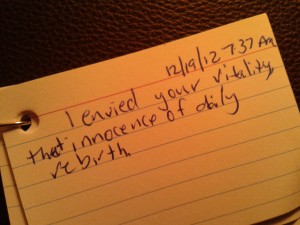 12/19/12 7:37 AM
I envied your vitality,
that innocence of daily
rebirth.